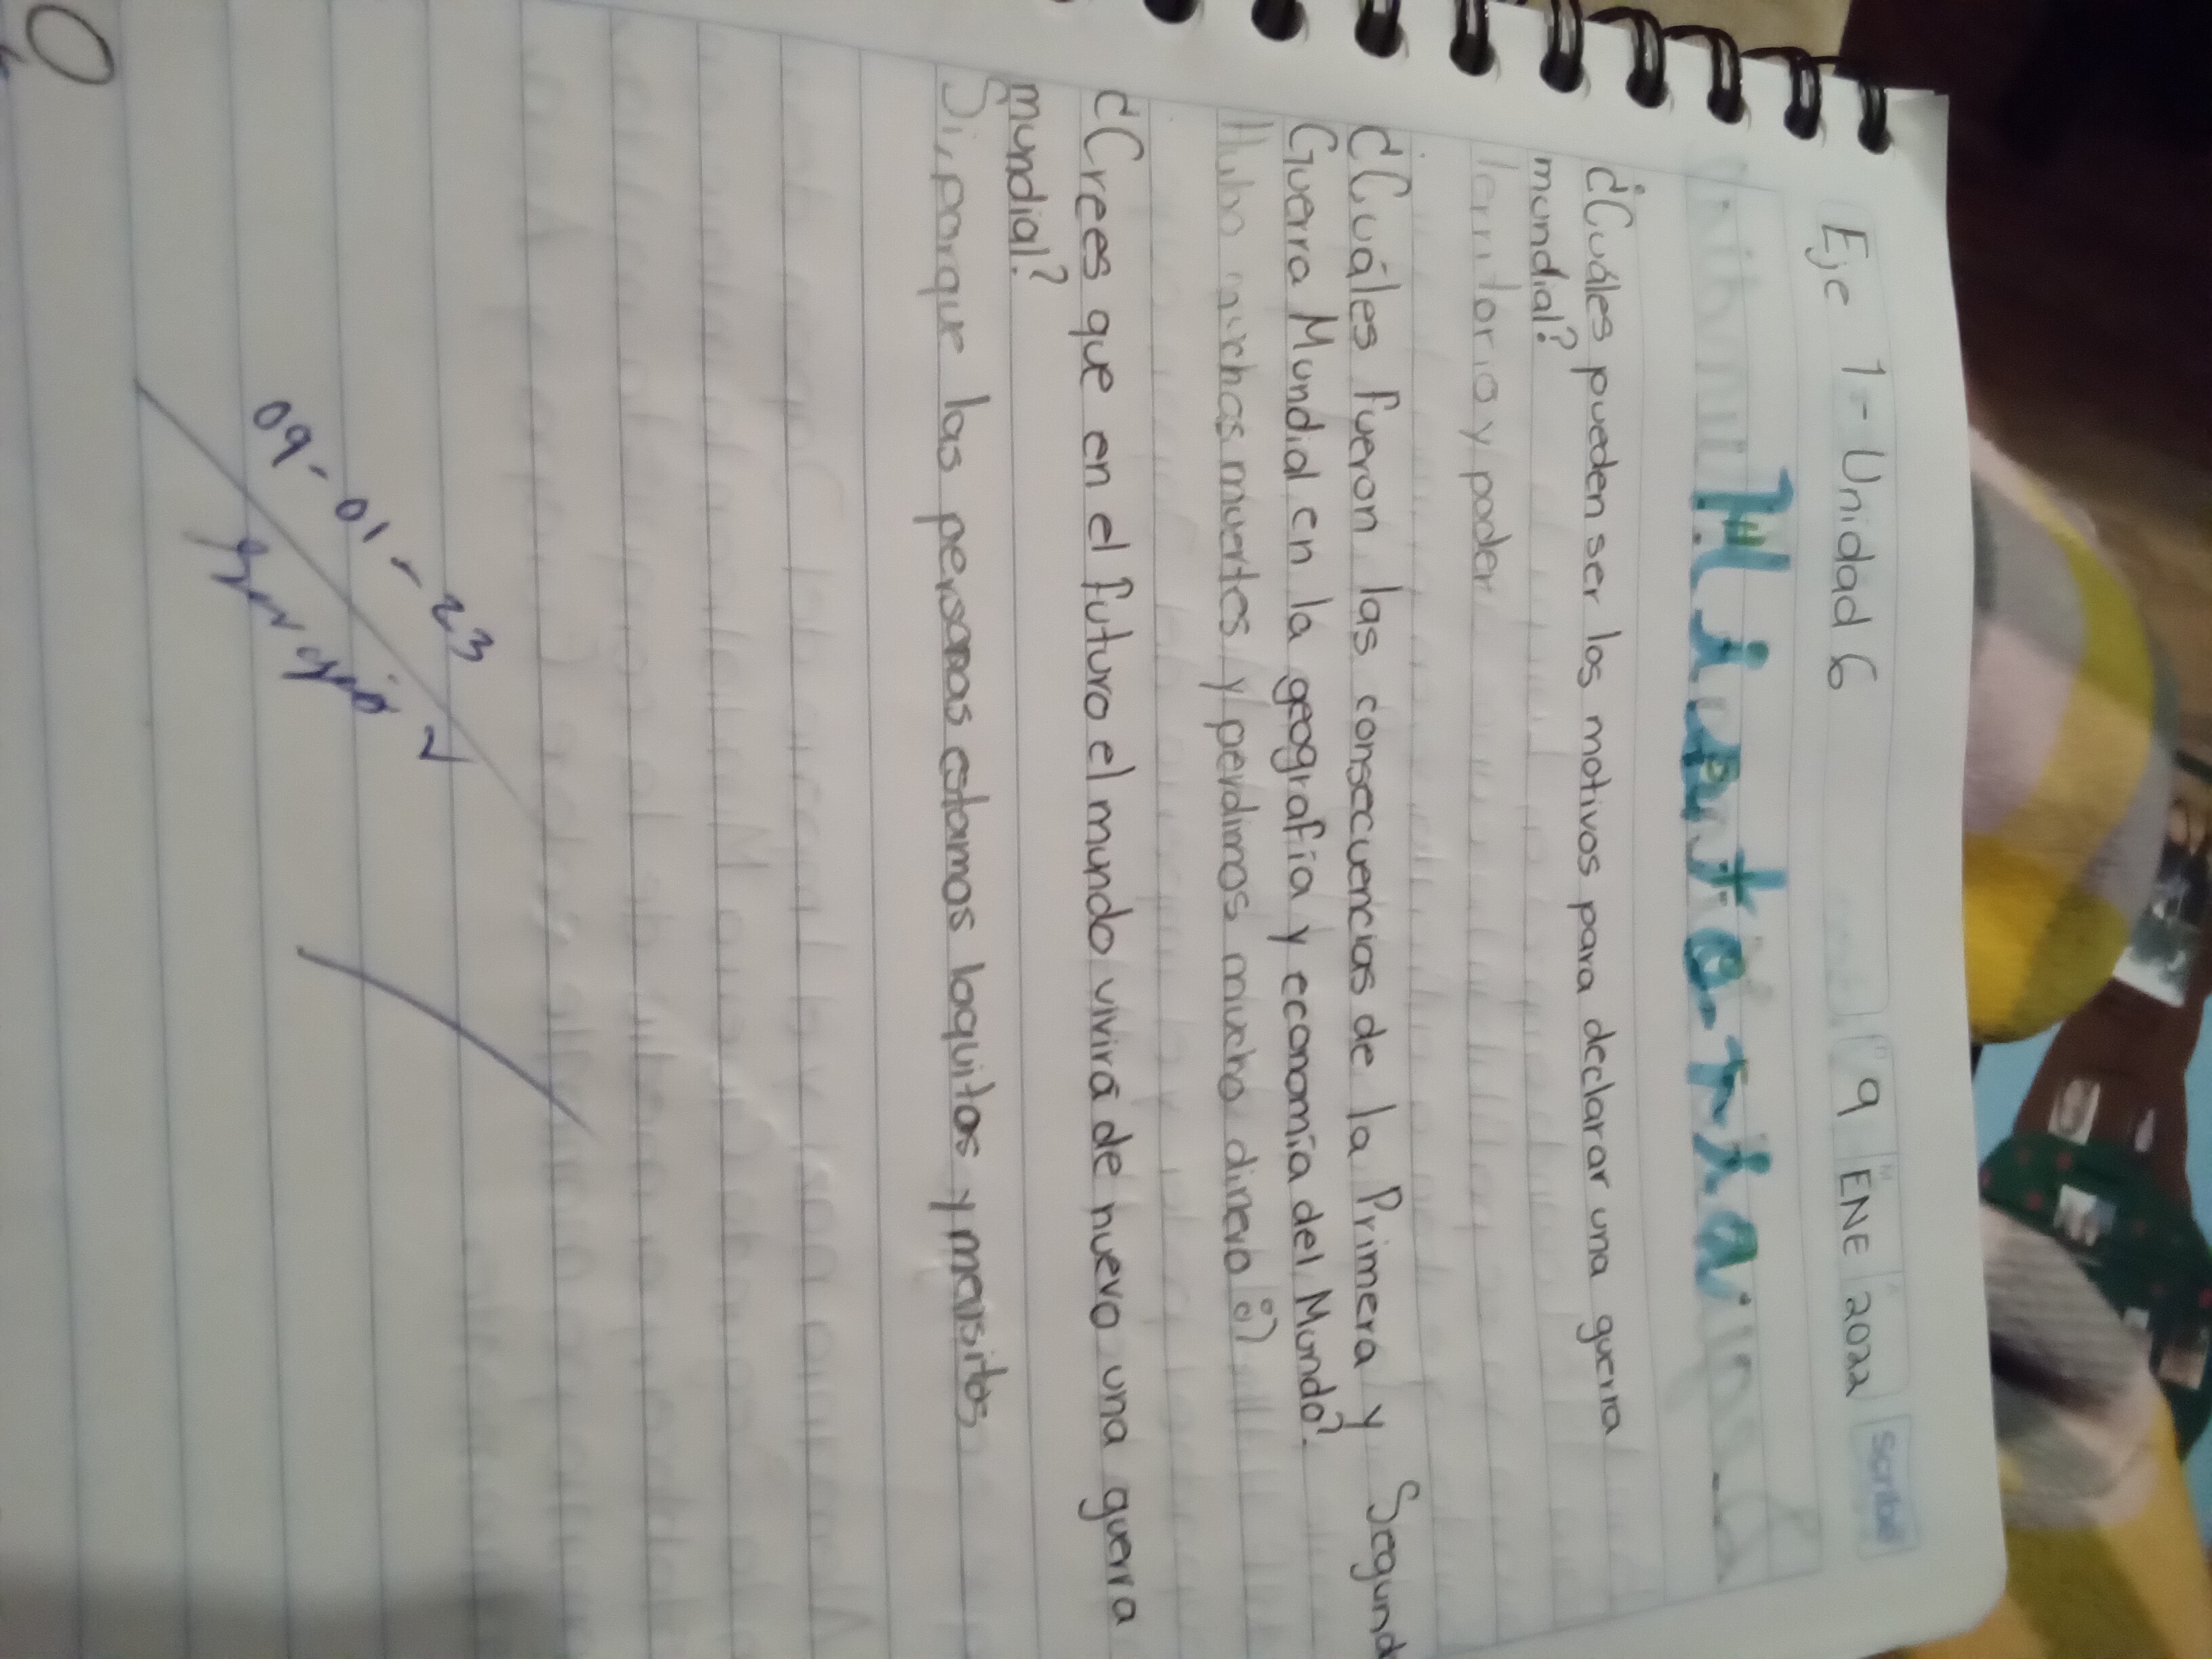 Eje 1 - Unidad 6
9 ENE 2022
scribe
Historia
¿Cuáles pueden ser los motivos para declarar una guerra
mundial?
Territorio y poder
¿Cuáles fueron las consecuencias de la Primera y Segund
Guerra Mundial en la geografía y economía del Mundo?
Hubo muchas muertes y perdimos mucho dinero
¿Crees que en el futuro el mundo vivirá de nuevo una guerra
mundial?
Si, porque las personas estamos loquitos y mensitos
09-01-23